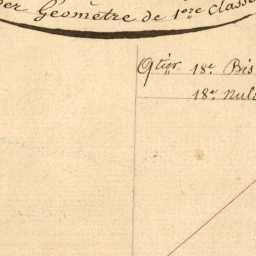 Géomètre de 1ere classe
Qtier 18e Bis
18e